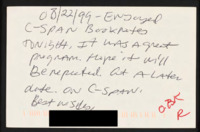 08/22/99 - Enjoyed
C-SPAN Booknotes
Tonight. It was a great
program. Hope it will
be repeated at a later
date on C-SPAN.
Best wishes
O.B.K
R